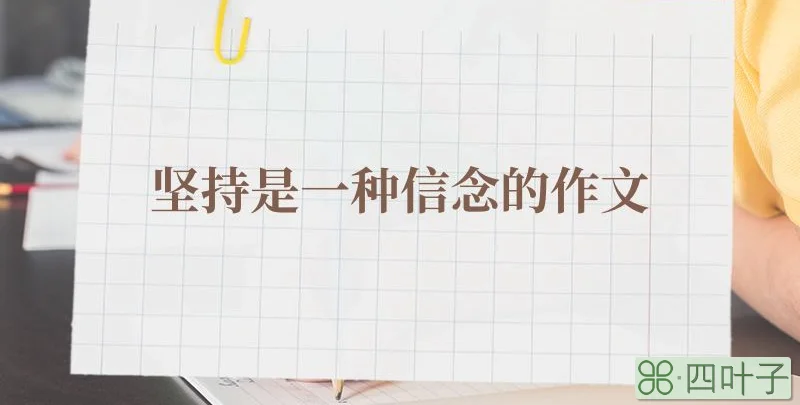 坚持是一种信念的作文
四叶子